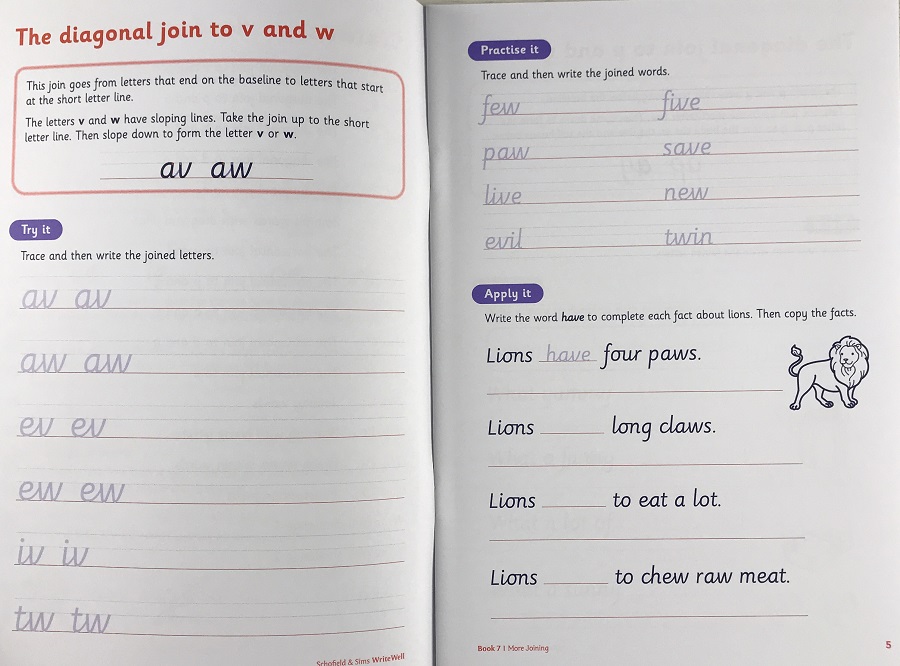 The diagonal join to v and w
This join goes from letters that end on the baseline to letters that start
at the short letter line.
The letters v and w have sloping lines. Take the join up to the short
letter line. Then slope down to form the letter v or w.
av aw
Try it
Trace and then write the joined letters.
av av
aw aw
ev ev
ew ew
iv iv
tw tw
Schofield & Sims WriteWell
Practise it
Trace and then write the joined words.
few five
paw save
live new
evil twin
Apply it
Write the word have to complete each fact about lions. Then copy the facts.
Lions have four paws.
Lions ______ long claws.
Lions ______ to eat a lot.
Lions ______ to chew raw meat.
Book 7 | More Joining
5